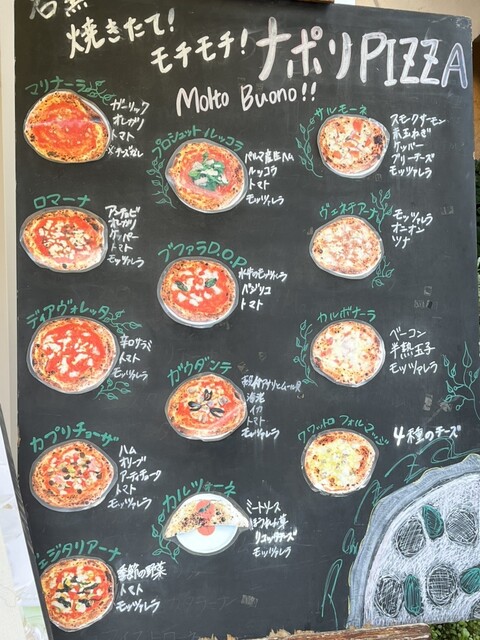 焼きたて!
モチモチ!
ナポリPIZZA
Molto Buono!!
マリナーラ
ガーリック
オレガノ
トマト
×チーズなし
ロマーナ
アンチョビ
オレガノ
ケッパー
トマト
モッツァレラ
ディアヴォレッタ
辛口サラミ
トマト
モッツァレラ
カプリチョーザ
ハム
オリーブ
アーティチョーク
トマト
モッツァレラ
ベジタリアーナ
季節の野菜
トマト
モッツァレラ
プロシュット ルッコラ
パルマ産生ハム
ルッコラ
トマト
モッツァレラ
ブファラD.O.P
水牛のモッツァレラ
バジリコ
トマト
ガウダンテ
海老
イカ
トマト
モッツァレラ
カルツォーネ
ミートソース
ほうれん草
リコッタチーズ
モッツァレラ
サルモーネ
スモークサーモン
紫玉ねぎ
ケッパー
クリームチーズ
モッツァレラ
ヴェネティアーナ
モッツァレラ
オニオン
ツナ
カルボナーラ
ベーコン
半熟玉子
モッツァレラ
クワットロ フォルマッジ
4種のチーズ